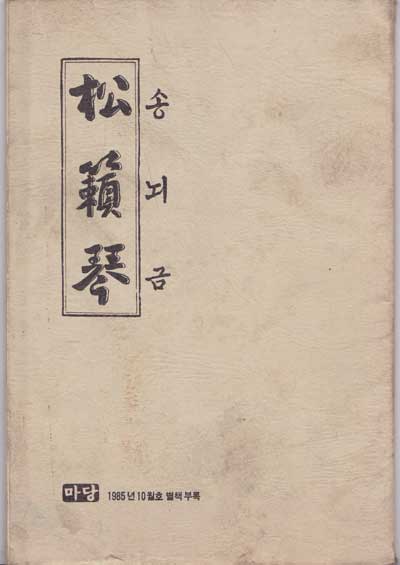 松籟琴
송뢰금
마당 1985년 10월호 별책 부록